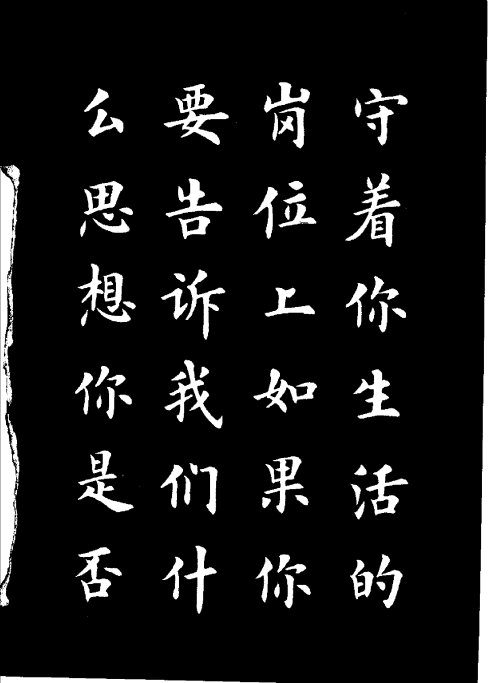 守着你生活的
岗位上如果你
要告诉我们什
么思想你是否